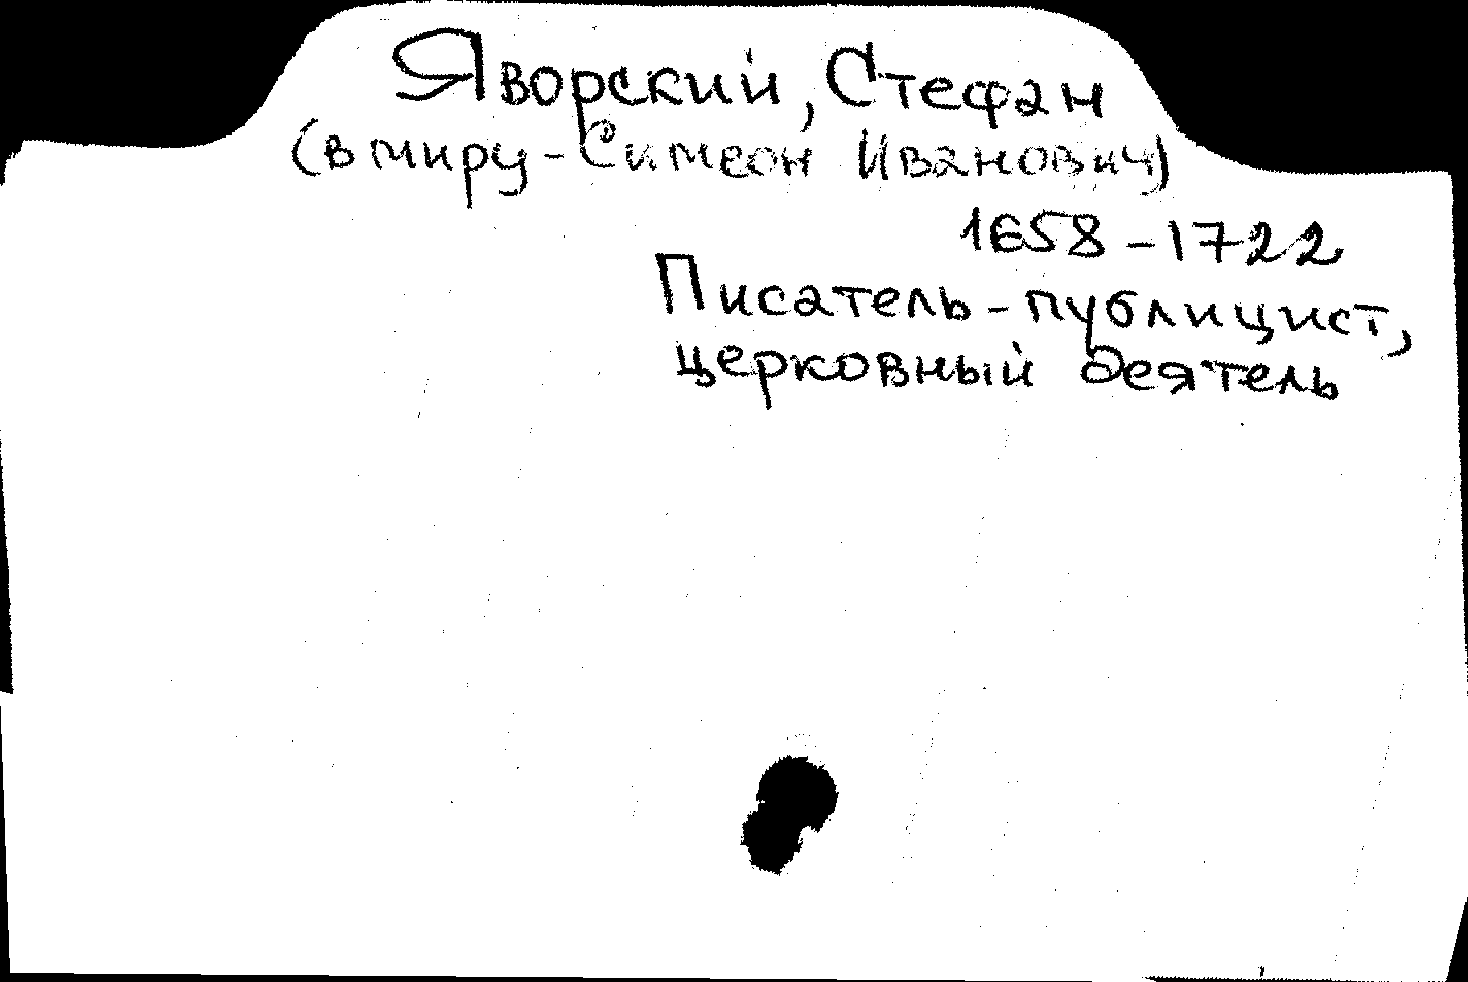 Яворский, Стефан
(в миру - Симеон Иванович)
1658 - 1722
Писатель - публицист,
церковный деятель